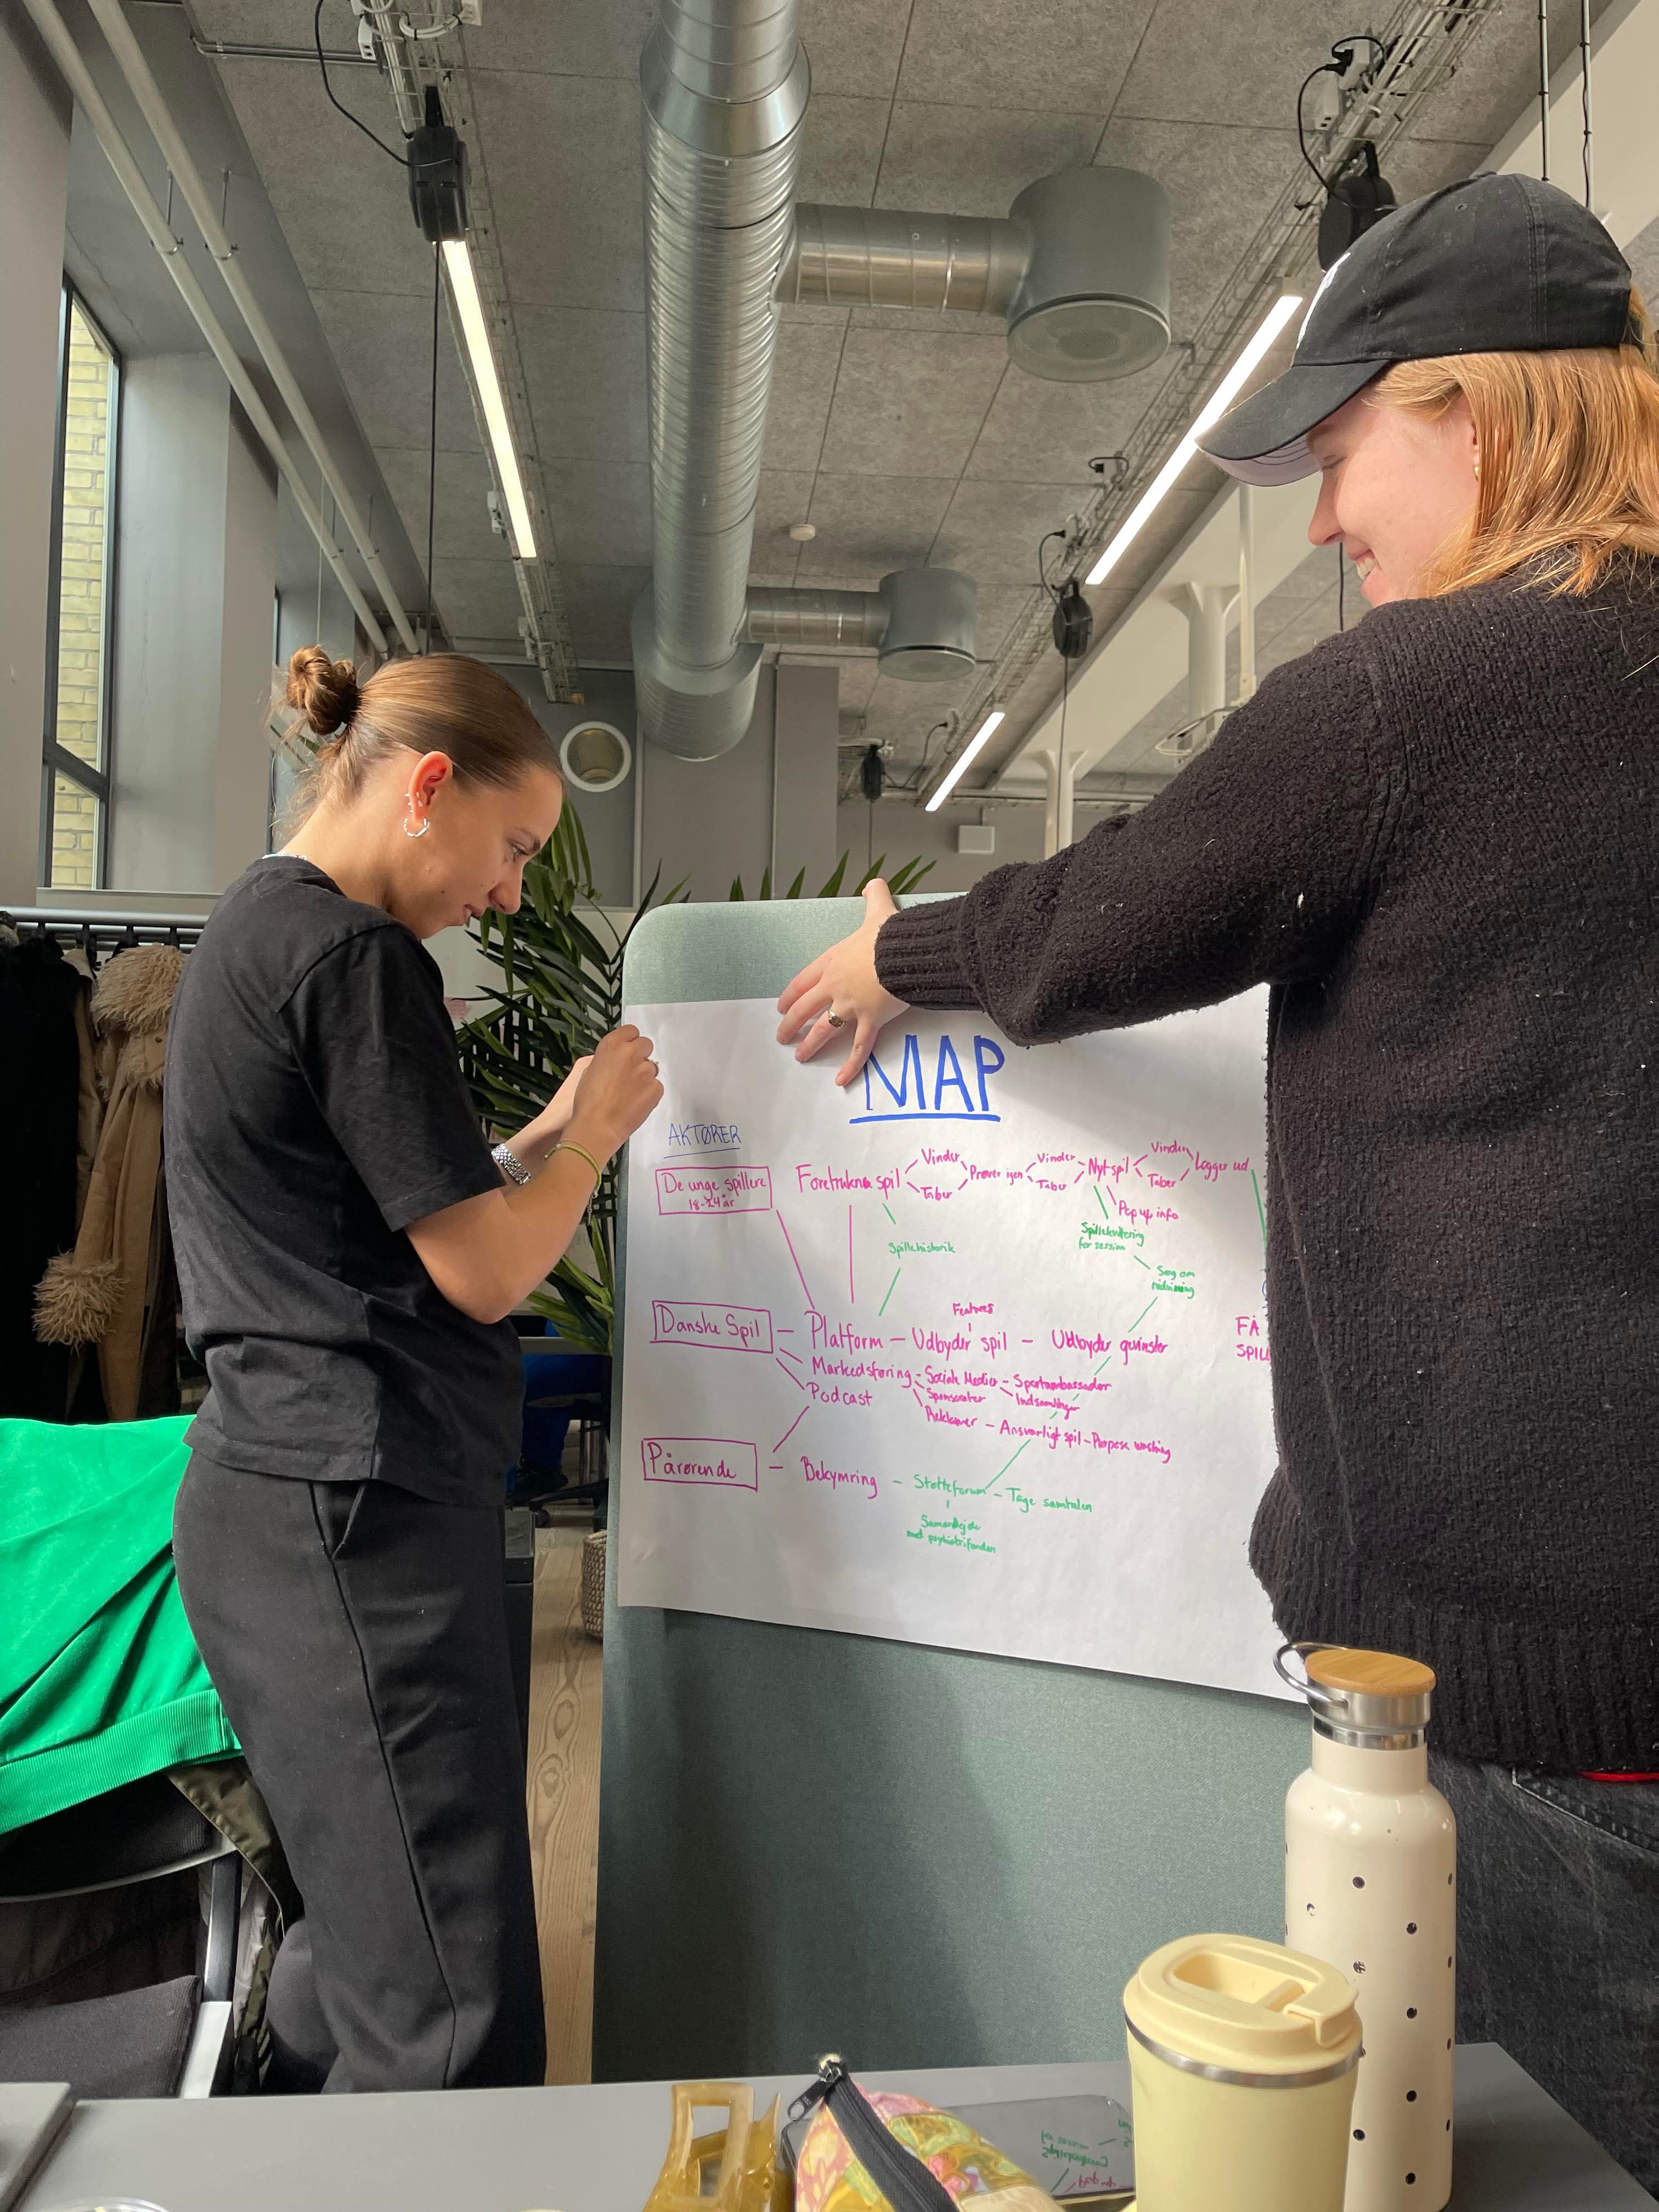 MAP
AKTØRER
De unge spillere
18-24 år
Foretrukne spil
Vinder
Taber
Prøver igen
Vinder
Taber
Nyt spil
Vinder
Taber
Logger ud
Pop up info
Spillehistorik
for session
Søg om
Danske Spil
Platform - Udbyder spil - Udbyder gevinster
Features
Markedsføring - Sociale Medier - Sportsambassadør
Sponsorater
Indsamlinger
Podcast
Reklamer - Ansvarligt spil - Purpose washing
FÅ
SPIL
Pårørende - Bekymring - Støtteforum - Tage samtalen
Samarbejde
med psykiatrifonden